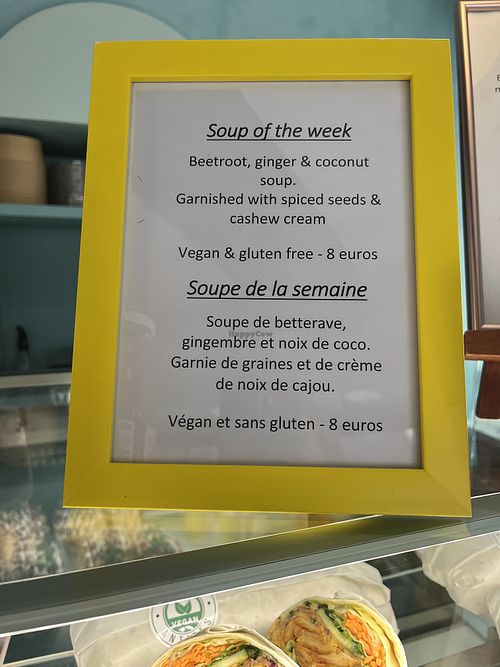 Soup of the week
Beetroot, ginger & coconut
soup.
Garnished with spiced seeds &
cashew cream
Vegan & gluten free - 8 euros
Soupe de la semaine
Soupe de betterave,
gingembre et noix de coco.
Garnie de graines et de crème
de noix de cajou.
Végan et sans gluten - 8 euros
HappyCow
VEGAN